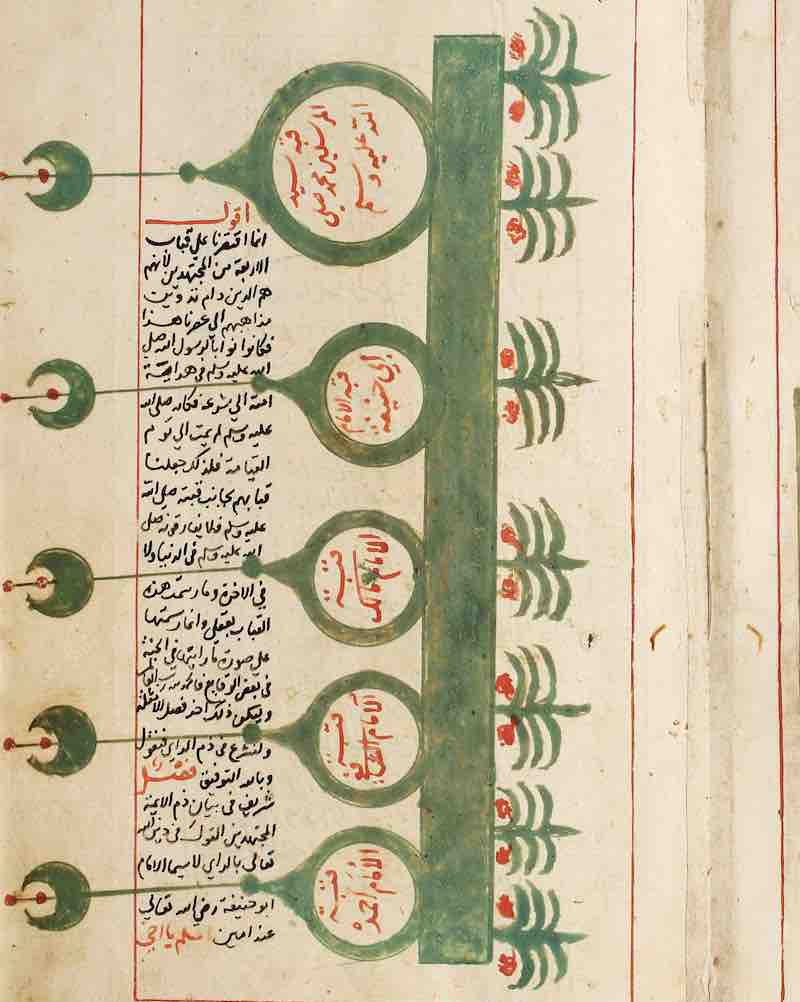 قبة سيد
المرسلين محمد صلى
الله عليه وسلم
قبة الامام
ابي حنيفة
قبة
الامام مالك
قبة
الامام الشافعي
قبة
الامام احمد
اقول
انما اقتصرنا علي قباب
الاربعة من المجتهدين لأنهم
هم الذين دام تدوين
مذاهبهم الي عصرنا هذا
فكانوا نوابا لرسول الله صلي
الله عليه وسلم في هداية
امته الي شرعه فكانه صلي الله
عليه وسلم لم يمت الي يوم
القيامة فلذلك جعلنا
قبابهم بجانب قبته صلي الله
عليه وسلم فلا يفارقونه صلي
الله عليه وسلم في الدنيا ولا
في الاخرة وما رسمت هذه
القباب بعقلي وانما رسمتها
علي صورة ما رايته في الجنة
في بعض الوقايع فالحمد لله رب العالمين
وليكن ذلك اخر فصل الامثلة
ولنشرع في ذم الراي فنقول
وبالله التوفيق فصل
شريف في بيان ذم الايمة
المجتهدين القول في دين الله
تعالى بالراي لاسيما الامام
ابو حنيفة رضي الله تعالي
عنه امين اعلم يا اخي